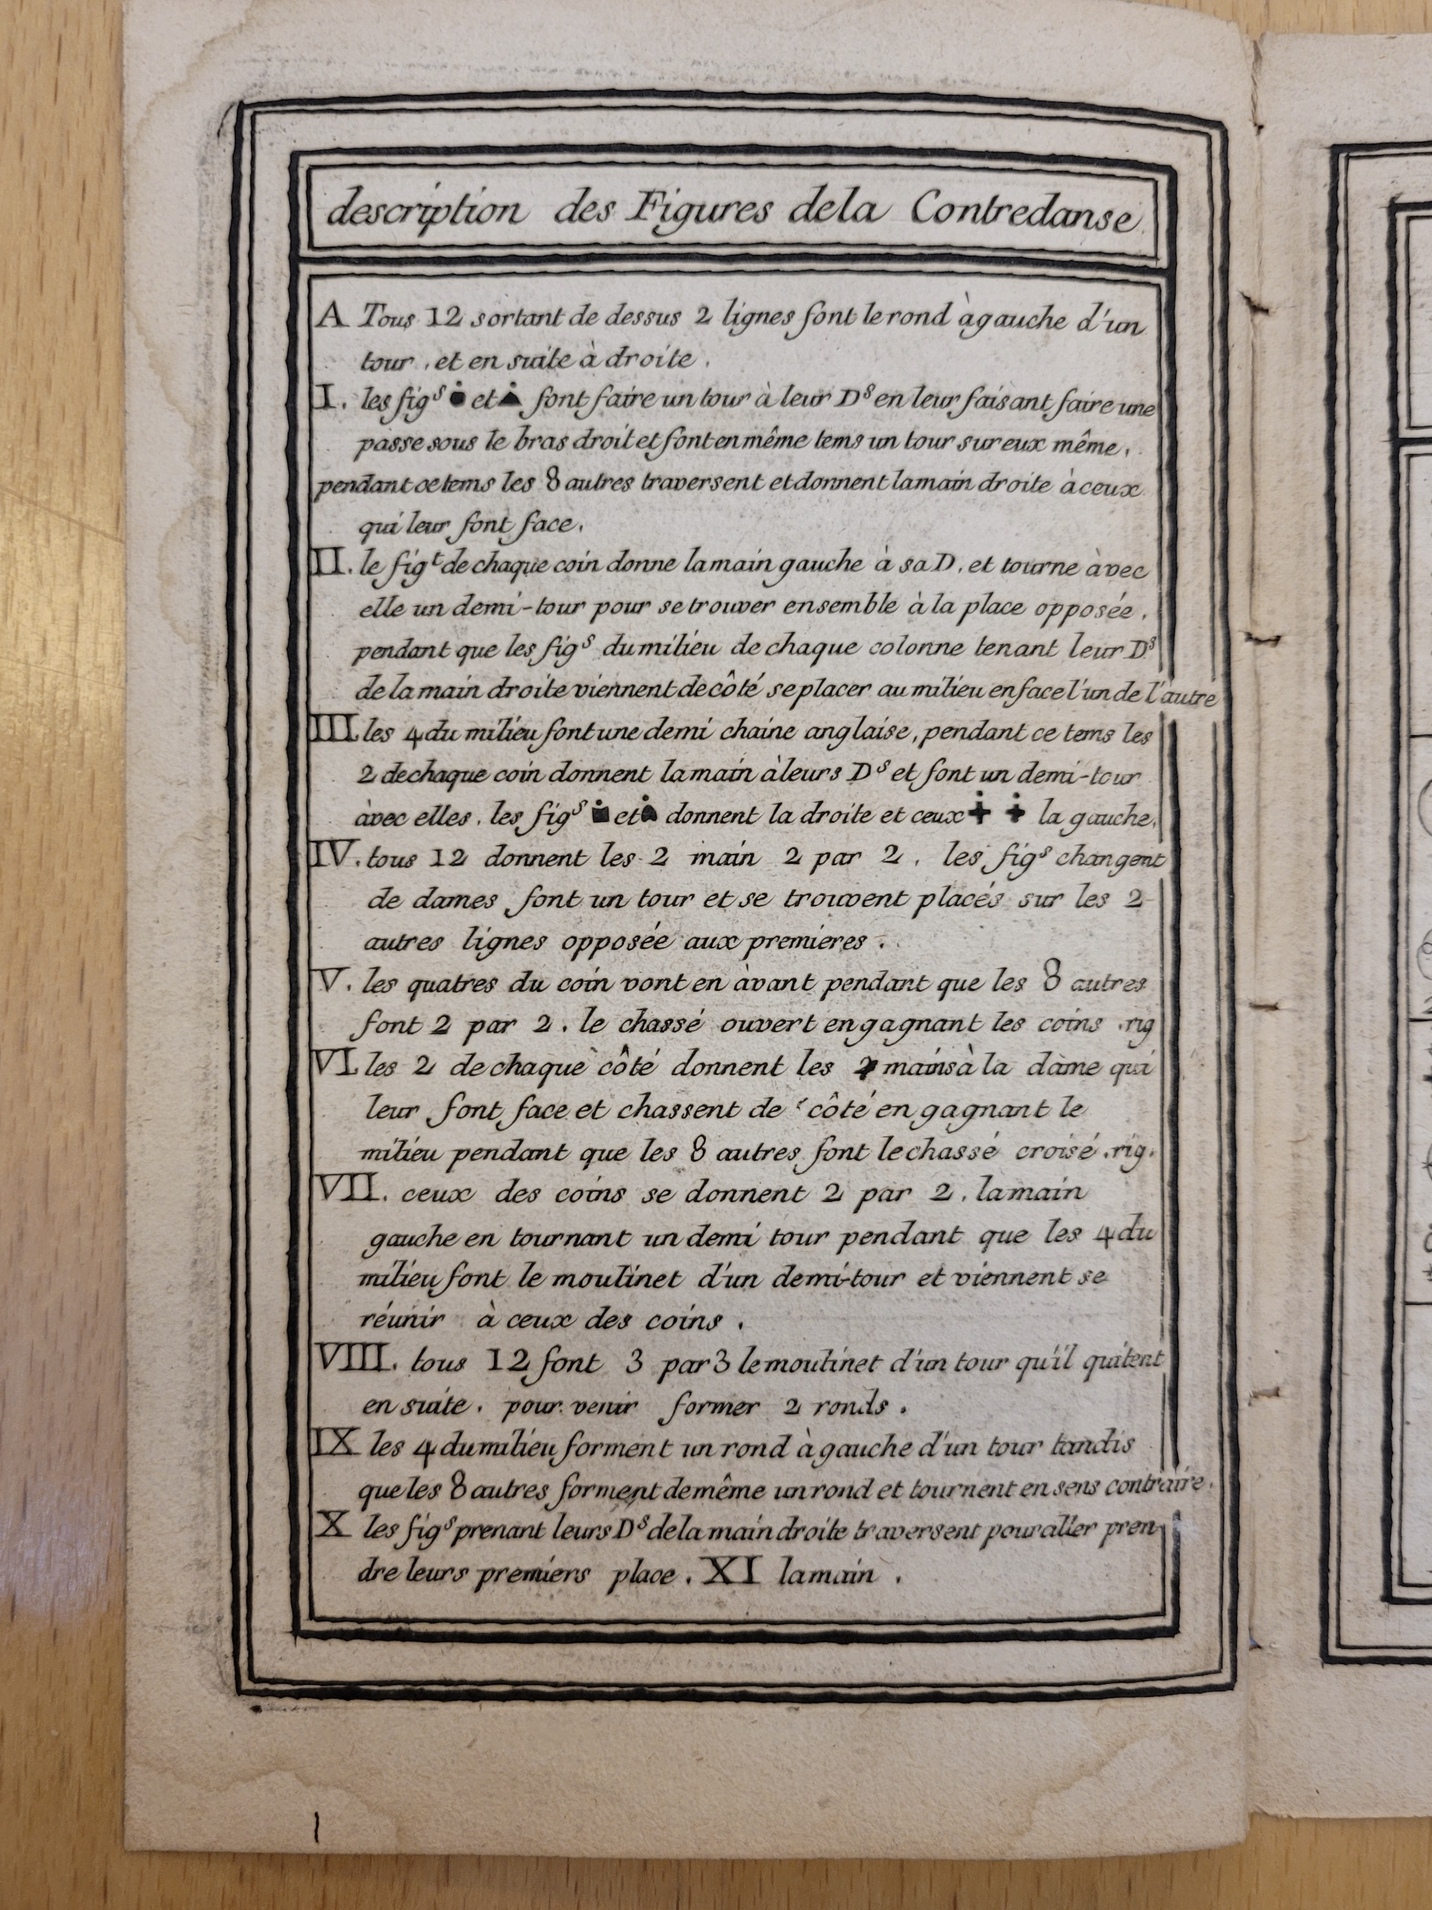 description des Figures dela Contredanse
A Tous 12 sortant de dessus 2 lignes font le rond à gauche d'un
tour, et en suite à droite.
I. les figs et font faire un tour à leur Ds en leur faisant faire une
passe sous le bras droit et font en même tems un tour sur eux même.
pendant ce tems les 8 autres traversent et donnent la main droite à ceux
qui leur font face.
II. le figt de chaque coin donne la main gauche à sa D. et tourne àvec
elle un demi-tour pour se trouver ensemble à la place opposée.
pendant que les figs du milieu de chaque colonne tenant leur Ds
de la main droite viennent de côté se placer au milieu en face l'un de l'autre
III les 4 du milieu font une demi chaine anglaise, pendant ce tems les
2 de chaque coin donnent la main à leurs Ds et font un demi-tour
àvec elles. les figs et donnent la droite et ceux la gauche.
IV. tous 12 donnent les 2 main 2 par 2. les figs changent
de dames font un tour et se trouvent placés sur les 2
autres lignes opposée aux premieres.
V. les quatres du coin vont en àvant pendant que les 8 autres
font 2 par 2. le chassé ouvert en gagnant les coins .rig
VI les 2 de chaque côté donnent les 2 mains à la dame qui
leur font face et chassent de côté en gagnant le
milieu pendant que les 8 autres font le chassé croisé .rig.
VII. ceux des coins se donnent 2 par 2. la main
gauche en tournant un demi tour pendant que les 4 du
milieu font le moulinet d'un demi-tour et viennent se
réunir à ceux des coins.
VIII. tous 12 font 3 par 3 le moulinet d'un tour qu'il quitent
en suite. pour venir former 2 ronds.
IX les 4 du milieu forment un rond à gauche d'un tour tandis
que les 8 autres forment de même un rond et tournent en sens contraire.
X les figs prenant leurs Ds de la main droite traversent pour aller pren-
dre leurs premiers place. XI la main.